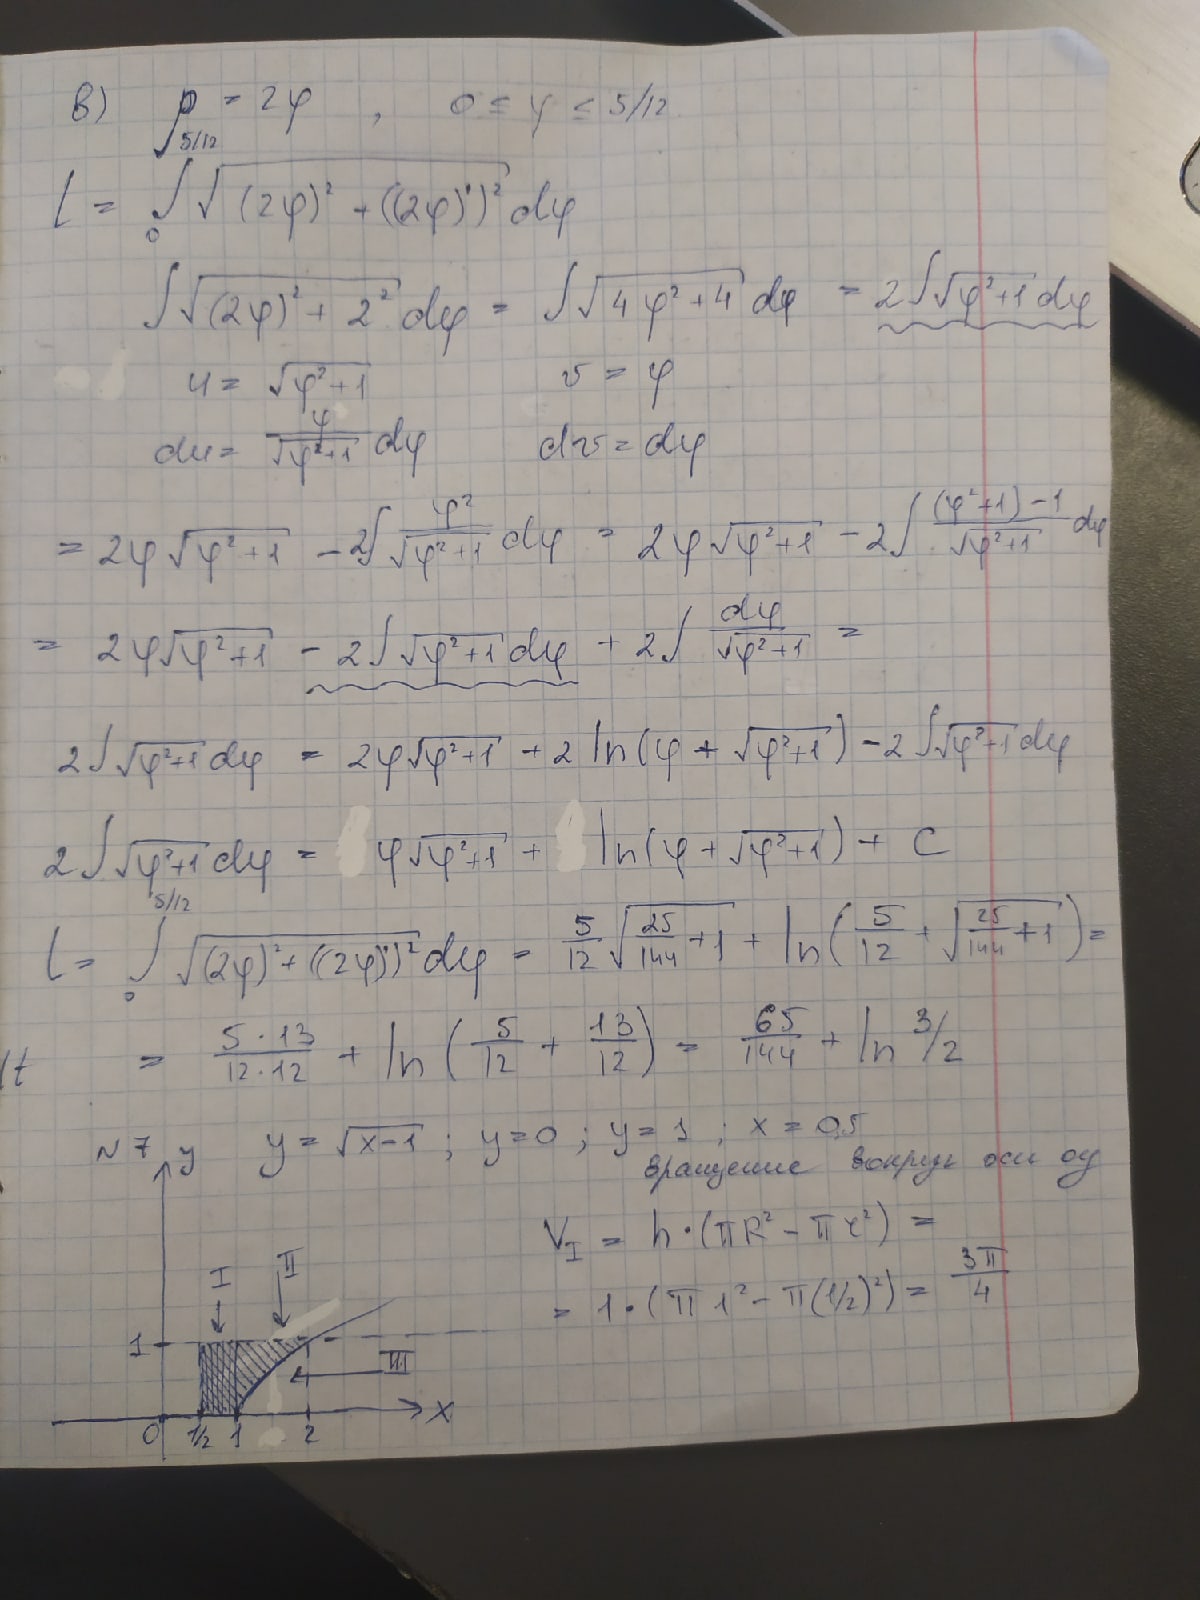 в) ρ = 2φ , 0 ≤ φ ≤ 5/12
l = ∫₀^{5/12} √((2φ)² + ((2φ)')²) dφ
∫√((2φ)² + 2²) dφ = ∫√(4φ²+4) dφ = 2∫√(φ²+1) dφ
u = √(φ²+1) v = φ
du = φ/√(φ²+1) dφ dv = dφ
= 2φ√(φ²+1) - 2∫ φ²/√(φ²+1) dφ = 2φ√(φ²+1) - 2∫ ((φ²+1)-1)/√(φ²+1) dφ
= 2φ√(φ²+1) - 2∫√(φ²+1) dφ + 2∫ dφ/√(φ²+1) =
2∫√(φ²+1) dφ = 2φ√(φ²+1) + 2 ln(φ + √(φ²+1)) - 2∫√(φ²+1) dφ
2∫√(φ²+1) dφ = φ√(φ²+1) + ln(φ + √(φ²+1)) + C
l = ∫₀^{5/12} √((2φ)² + ((2φ)')²) dφ = 5/12 √(25/144 + 1) + ln(5/12 + √(25/144 + 1)) =
= 5·13/12·12 + ln(5/12 + 13/12) = 65/144 + ln 3/2
N 7 y = √(x-1) ; y = 0 ; y = 1 ; x = 0,5
вращение вокруг оси oy
y
V_I = h·(πR² - πr²) =
= 1·(π1² - π(1/2)²) = 3π/4
I II
1
III
0 1/2 1 2 x